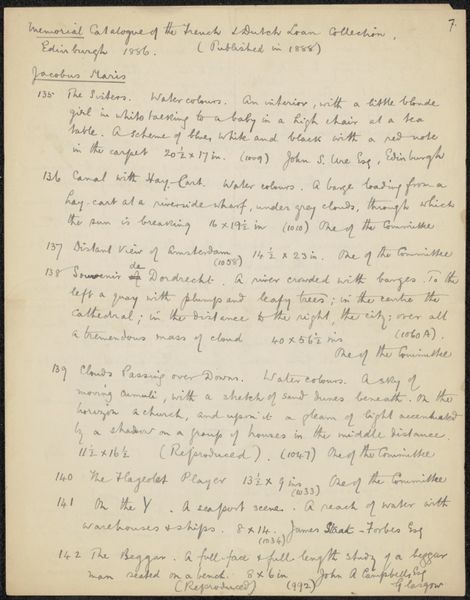 7.
Memorial Catalogue of the French & Dutch Loan Collection,
Edinburgh 1886. (Published in 1888)
Jacobus Maris
135 The Sisters. Water colours. An interior, with a little blonde
girl in white talking to a baby in a high chair at a tea
table. A scheme of blue, white and black with a red note
in the carpet 20½ x 17 in. (1009) John S. Ure Esq, Edinburgh
136 Canal with Hay-Cart. Water colours. A barge loading from a
hay-cart at a riverside wharf, under gray clouds, through which
the sun is breaking 16 x 19½ in (1010) One of the Committee
137 Distant View of Amsterdam 14½ x 23 in. One of the Committee
(1058)
138 Souvenir de Dordrecht. A river crowded with barges. To the
left a quay with and leafy trees; in the centre the
Cathedral; in the distance to the right, the city; over all
a tremendous mass of cloud 40 x 56½ ins (1060A).
One of the Committee
139 Clouds Passing over Downs. Water colours. A sky of
moving cumuli, with a sketch of sand dunes beneath. On the
horizon a church, and upon it a gleam of light accentuated
by a shadow on a group of houses in the middle distance.
11½ x 16½ (Reproduced). (1047) One of the Committee
140 The Flageolet Player 13½ x 9 ins One of the Committee
(1033)
141 On the Y. A seaport scene. A reach of water with
warehouses & ships. 8 x 14. James Staats-Forbes Esq
(1034)
142 The Beggar. A full-face & full length study of a beggar
man seated on a bench. 8 x 6 in John A Campbell Esq
(Reproduced) (992) Glasgow